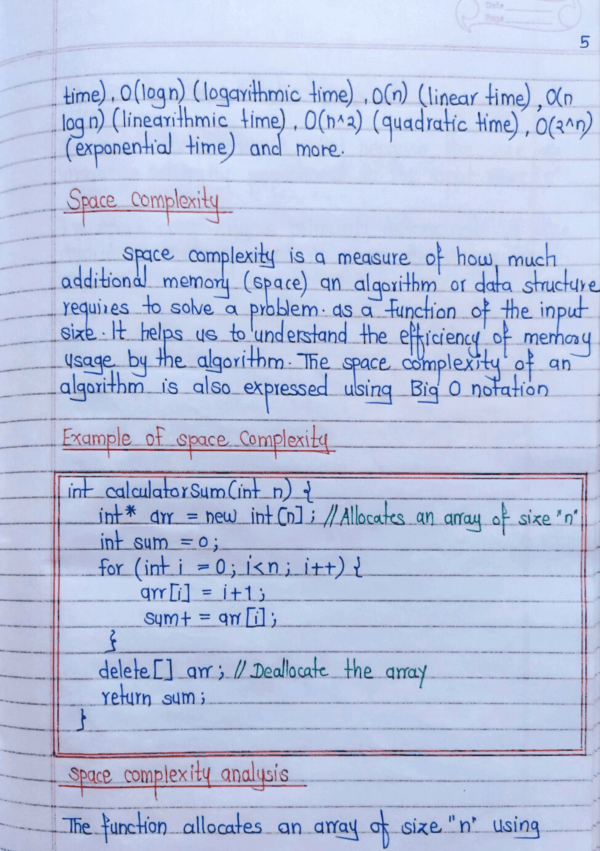 Date
Page
5
time), O(logn) (logarithmic time), O(n) (linear time), O(n
logn) (linearithmic time), O(n^2) (quadratic time), O(2^n)
(exponential time) and more.
Space Complexity
Space complexity is a measure of how much
additional memory (space) an algorithm or data structure
requires to solve a problem. as a function of the input
size. It helps us to understand the efficiency of memory
usage by the algorithm. The space complexity of an
algorithm is also expressed using Big O notation
Example of space Complexity
int calculatorSum(int n) {
int* arr = new int[n]; // Allocates an array of size "n"
int sum = 0;
for (int i = 0; i<n; i++) {
arr[i] = i+1;
sum+ = arr[i];
}
delete[] arr; // Deallocate the array
return sum;
}
Space complexity analysis
The function allocates an array of size "n" using